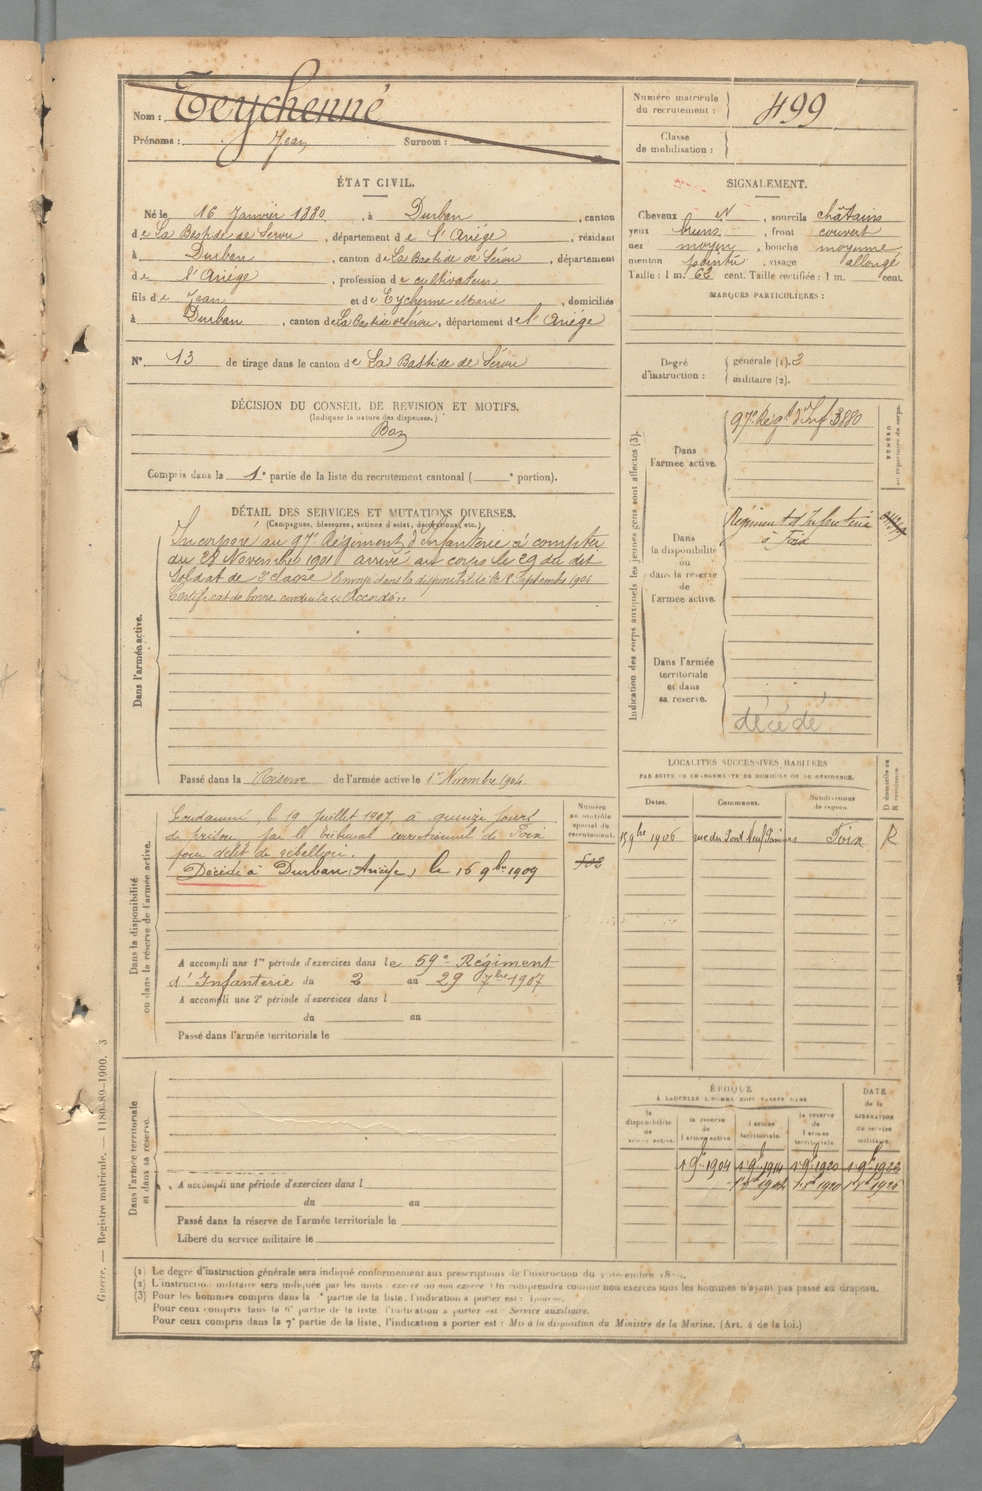 Nom : Teychenné
Prénoms : Jean Surnom :
Numéro matricule
du recrutement : 499
Classe
de mobilisation :
ÉTAT CIVIL.
Né le 16 Janvier 1880, à Durban, canton
de La Bastide de Sérou, département de l'Ariége, résidant
à Durban, canton de La Bastide de Sérou, département
de l'Ariége, profession de cultivateur
fils de Jean et de Eychenne Marie, domiciliés
à Durban, canton de La Bastide de Sérou, département de l'Ariége
N° 13 de tirage dans le canton de La Bastide de Sérou
SIGNALEMENT.
Cheveux N, sourcils châtains
yeux bruns, front couvert
nez moyen, bouche moyenne
menton pointu, visage allongé
Taille : 1 m. 62 cent. Taille rectifiée : 1 m. cent.
MARQUES PARTICULIÈRES :
Degré
d'instruction :
générale (1). 3
militaire (2).
DÉCISION DU CONSEIL DE REVISION ET MOTIFS.
(Indiquer la nature des dispenses.)
Bon
Compris dans la 1e partie de la liste du recrutement cantonal ( e portion).
DÉTAIL DES SERVICES ET MUTATIONS DIVERSES.
(Campagnes, blessures, actions d'éclat, décorations, etc.)
Dans l'armée active.
Incorporé au 97e Régiment d'Infanterie à compter
du 28 Novembre 1901 arrivé au corps le 29 du dit
Soldat de 2e classe Envoyé dans la disponibilité le 18 Septembre 1904
Certificat de bonne conduite "Accordé"
Passé dans la Réserve de l'armée active le 1er Novembre 1904.
Indication des corps auxquels les jeunes gens sont affectés (3).
Dans
l'armée active.
97e Régt d'Inf 3880
NUMÉRO
au répertoire du corps.
Dans
la disponibilité
ou
dans la réserve
de
l'armée active.
Régiment d'Infanterie
à Foix
Dans l'armée
territoriale
et dans
sa réserve.
décédé
Dans la disponibilité
ou dans la réserve de l'armée active.
Condamné, le 19 juillet 1907, à quinze jours
de prison, par le tribunal correctionnel de Foix
pour délit de rébellion.
Décédé à Durban (Ariège) le 16 9bre 1909
Numéro
au contrôle
spécial du
recrutement.
A accompli une 1re période d'exercices dans le 59e Régiment
d'Infanterie du 2 au 29 7bre 1907
A accompli une 2e période d'exercices dans l
du au
Passé dans l'armée territoriale le
LOCALITÉS SUCCESSIVES HABITÉES
PAR SUITE DE CHANGEMENTS DE DOMICILE OU DE RÉSIDENCE.
Dates. Communes. Subdivisions
de région.
D domicile ou
R résidence.
15 9bre 1906 rue du Pont Neuf Pamiers Foix R
ÉPOQUE
À LAQUELLE L'HOMME DOIT PASSER DANS
DATE
de la
LIBÉRATION
du service
militaire.
la
disponibilité
de
l'armée active.
la réserve
de
l'armée active
l'armée
territoriale.
la réserve
de
l'armée
territoriale.
1 9bre 1904 1 9bre 1914 1 9bre 1920
Dans l'armée territoriale
et dans sa réserve.
A accompli une période d'exercices dans l
du au
Passé dans la réserve de l'armée territoriale le
Libéré du service militaire le
(1) Le degré d'instruction générale sera indiqué conformément aux prescriptions de l'instruction du
(2) L'instruction militaire sera indiquée par les mots : exercé ou non exercé. On comprendra comme non exercés tous les hommes n'ayant pas passé au drapeau.
(3) Pour les hommes compris dans la partie de la liste, l'indication à porter est :
Pour ceux compris dans la 6e partie de la liste, l'indication à porter est : Service auxiliaire.
Pour ceux compris dans la 7e partie de la liste, l'indication à porter est : Mis à la disposition du Ministre de la Marine. (Art. 4 de la loi.)
Guerre. — Registre matricule. — 1180-89-1900. 3